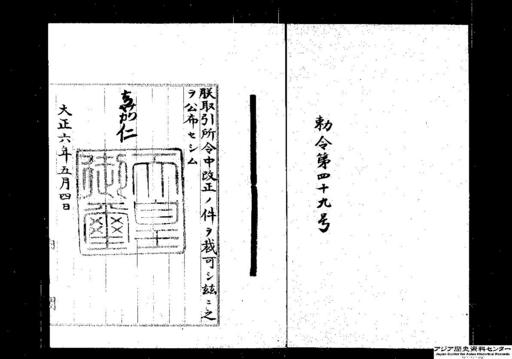 勅令第四十九号
朕取引所令中改正ノ件ヲ裁可シ玆ニ之
ヲ公布セシム
嘉仁
天皇
御璽
大正六年五月四日
アジア歴史資料センター
Japan Center for Asian Historical Records